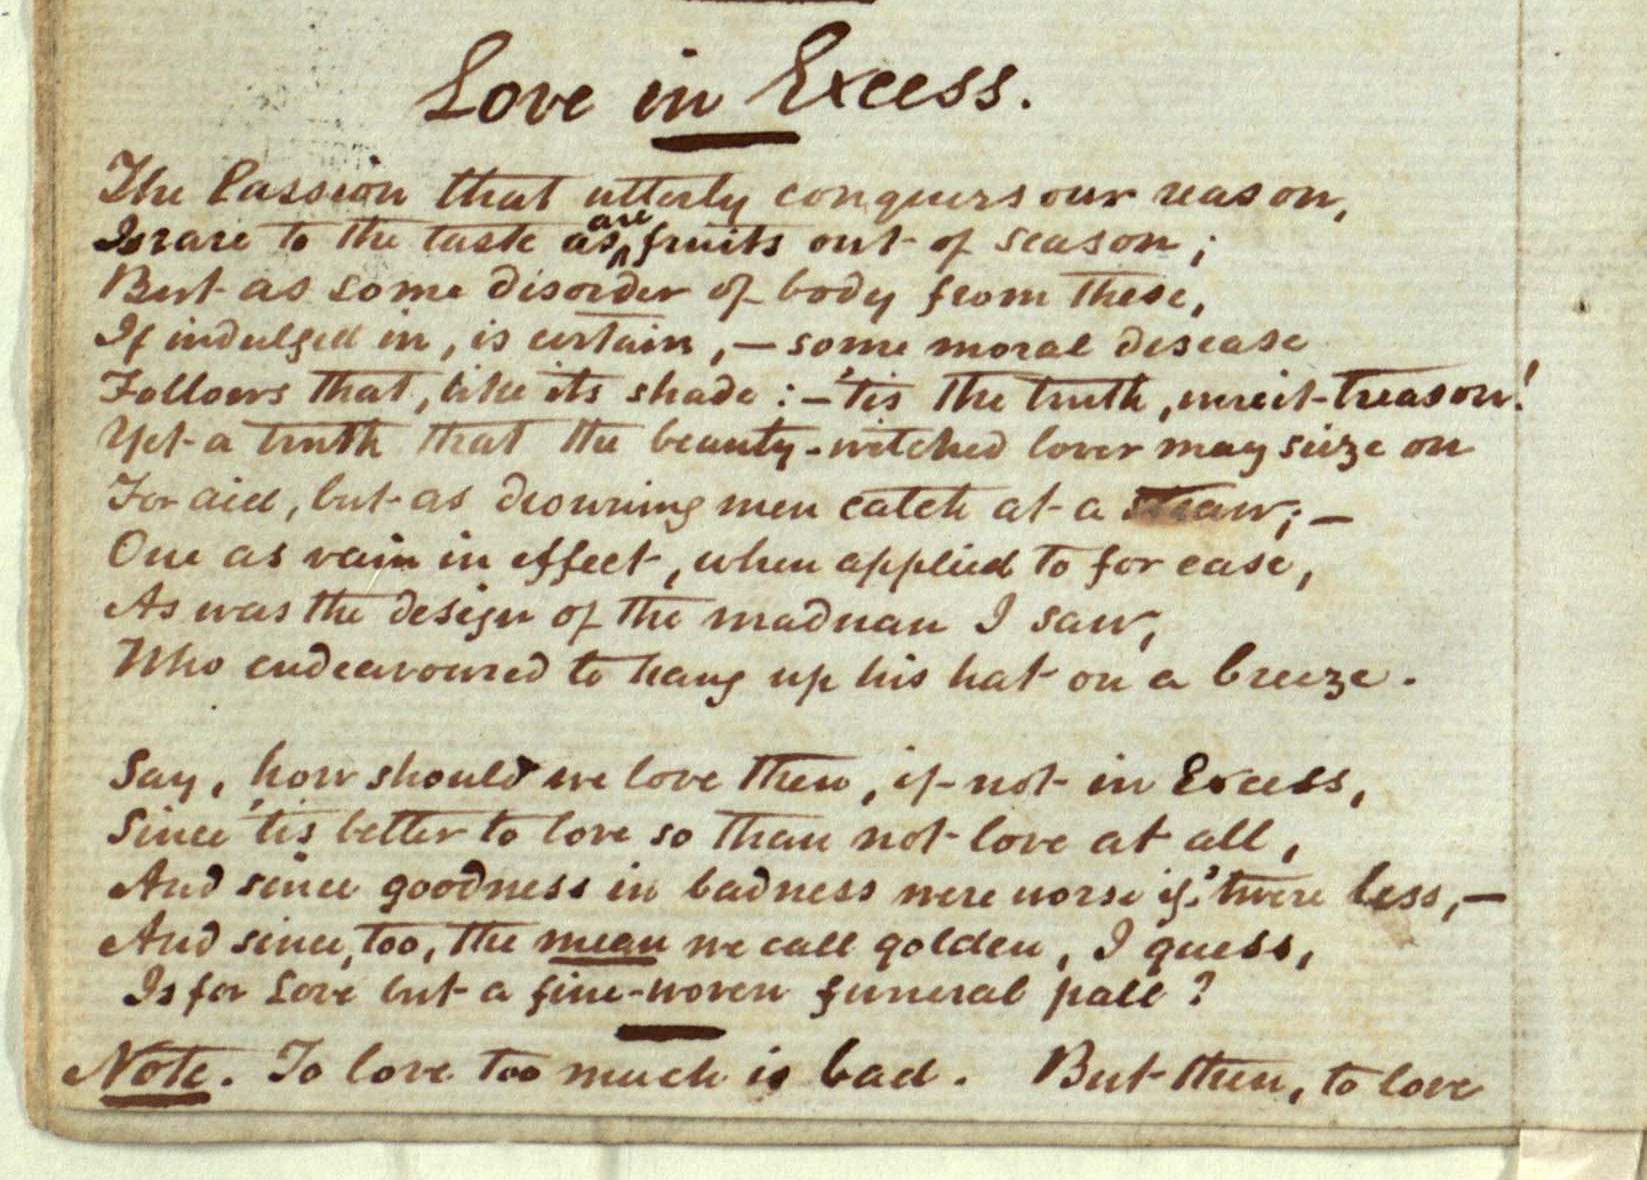 Love in Excess.
The Passion that utterly conquers our reason,
Is rare to the taste as are fruits out of season;
But as some disorder of body from these,
If indulged in, is certain, — some moral disease
Follows that, like its shade: — 'tis the truth, were it treason!
Yet a truth that the beauty-witched lover may seize on
For aid, but as drowning men catch at a straw; —
One as vain in effect, when applied to for ease,
As was the design of the madman I saw,
Who endeavoured to hang up his hat on a breeze.
Say, how should we love then, if not in Excess,
Since 'tis better to love so than not love at all,
And since goodness in badness were worse if 'twere less, —
And since, too, the mean we call golden, I guess,
Is for Love but a fine-woven funeral pall?
Note. To love too much is bad. But then, to love